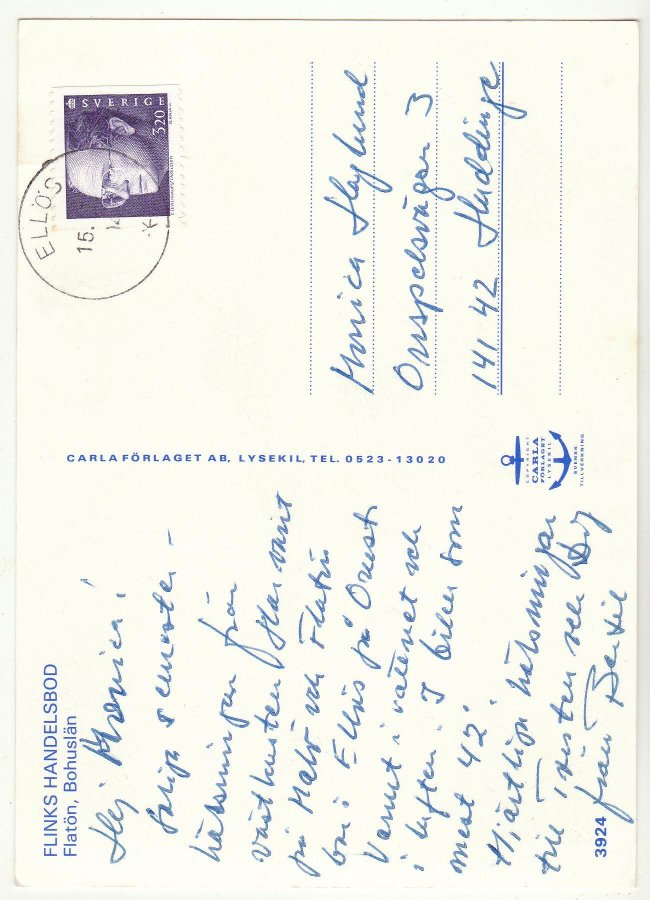 FLINKS HANDELSBOD
Flatön, Bohuslän
Hej Monica!
Soliga semester-
hälsningar från
västkusten. Har varit
på Malö och Flatön
bor i Ellös på Orust
Varmt i vattnet och
i luften. I bilen som
mest 42°
Hjärtliga hälsningar
till och
från Bertil
3924
CARLA FÖRLAGET AB, LYSEKIL, TEL. 0523-13020
COPYRIGHT
CARLA
FÖRLAGET
LYSEKIL
SVENSK
TILLVERKNING
SVERIGE
320
ELLÖS
15.
Monica Haglund
Orrspelsvägen 3
141 42 Huddinge